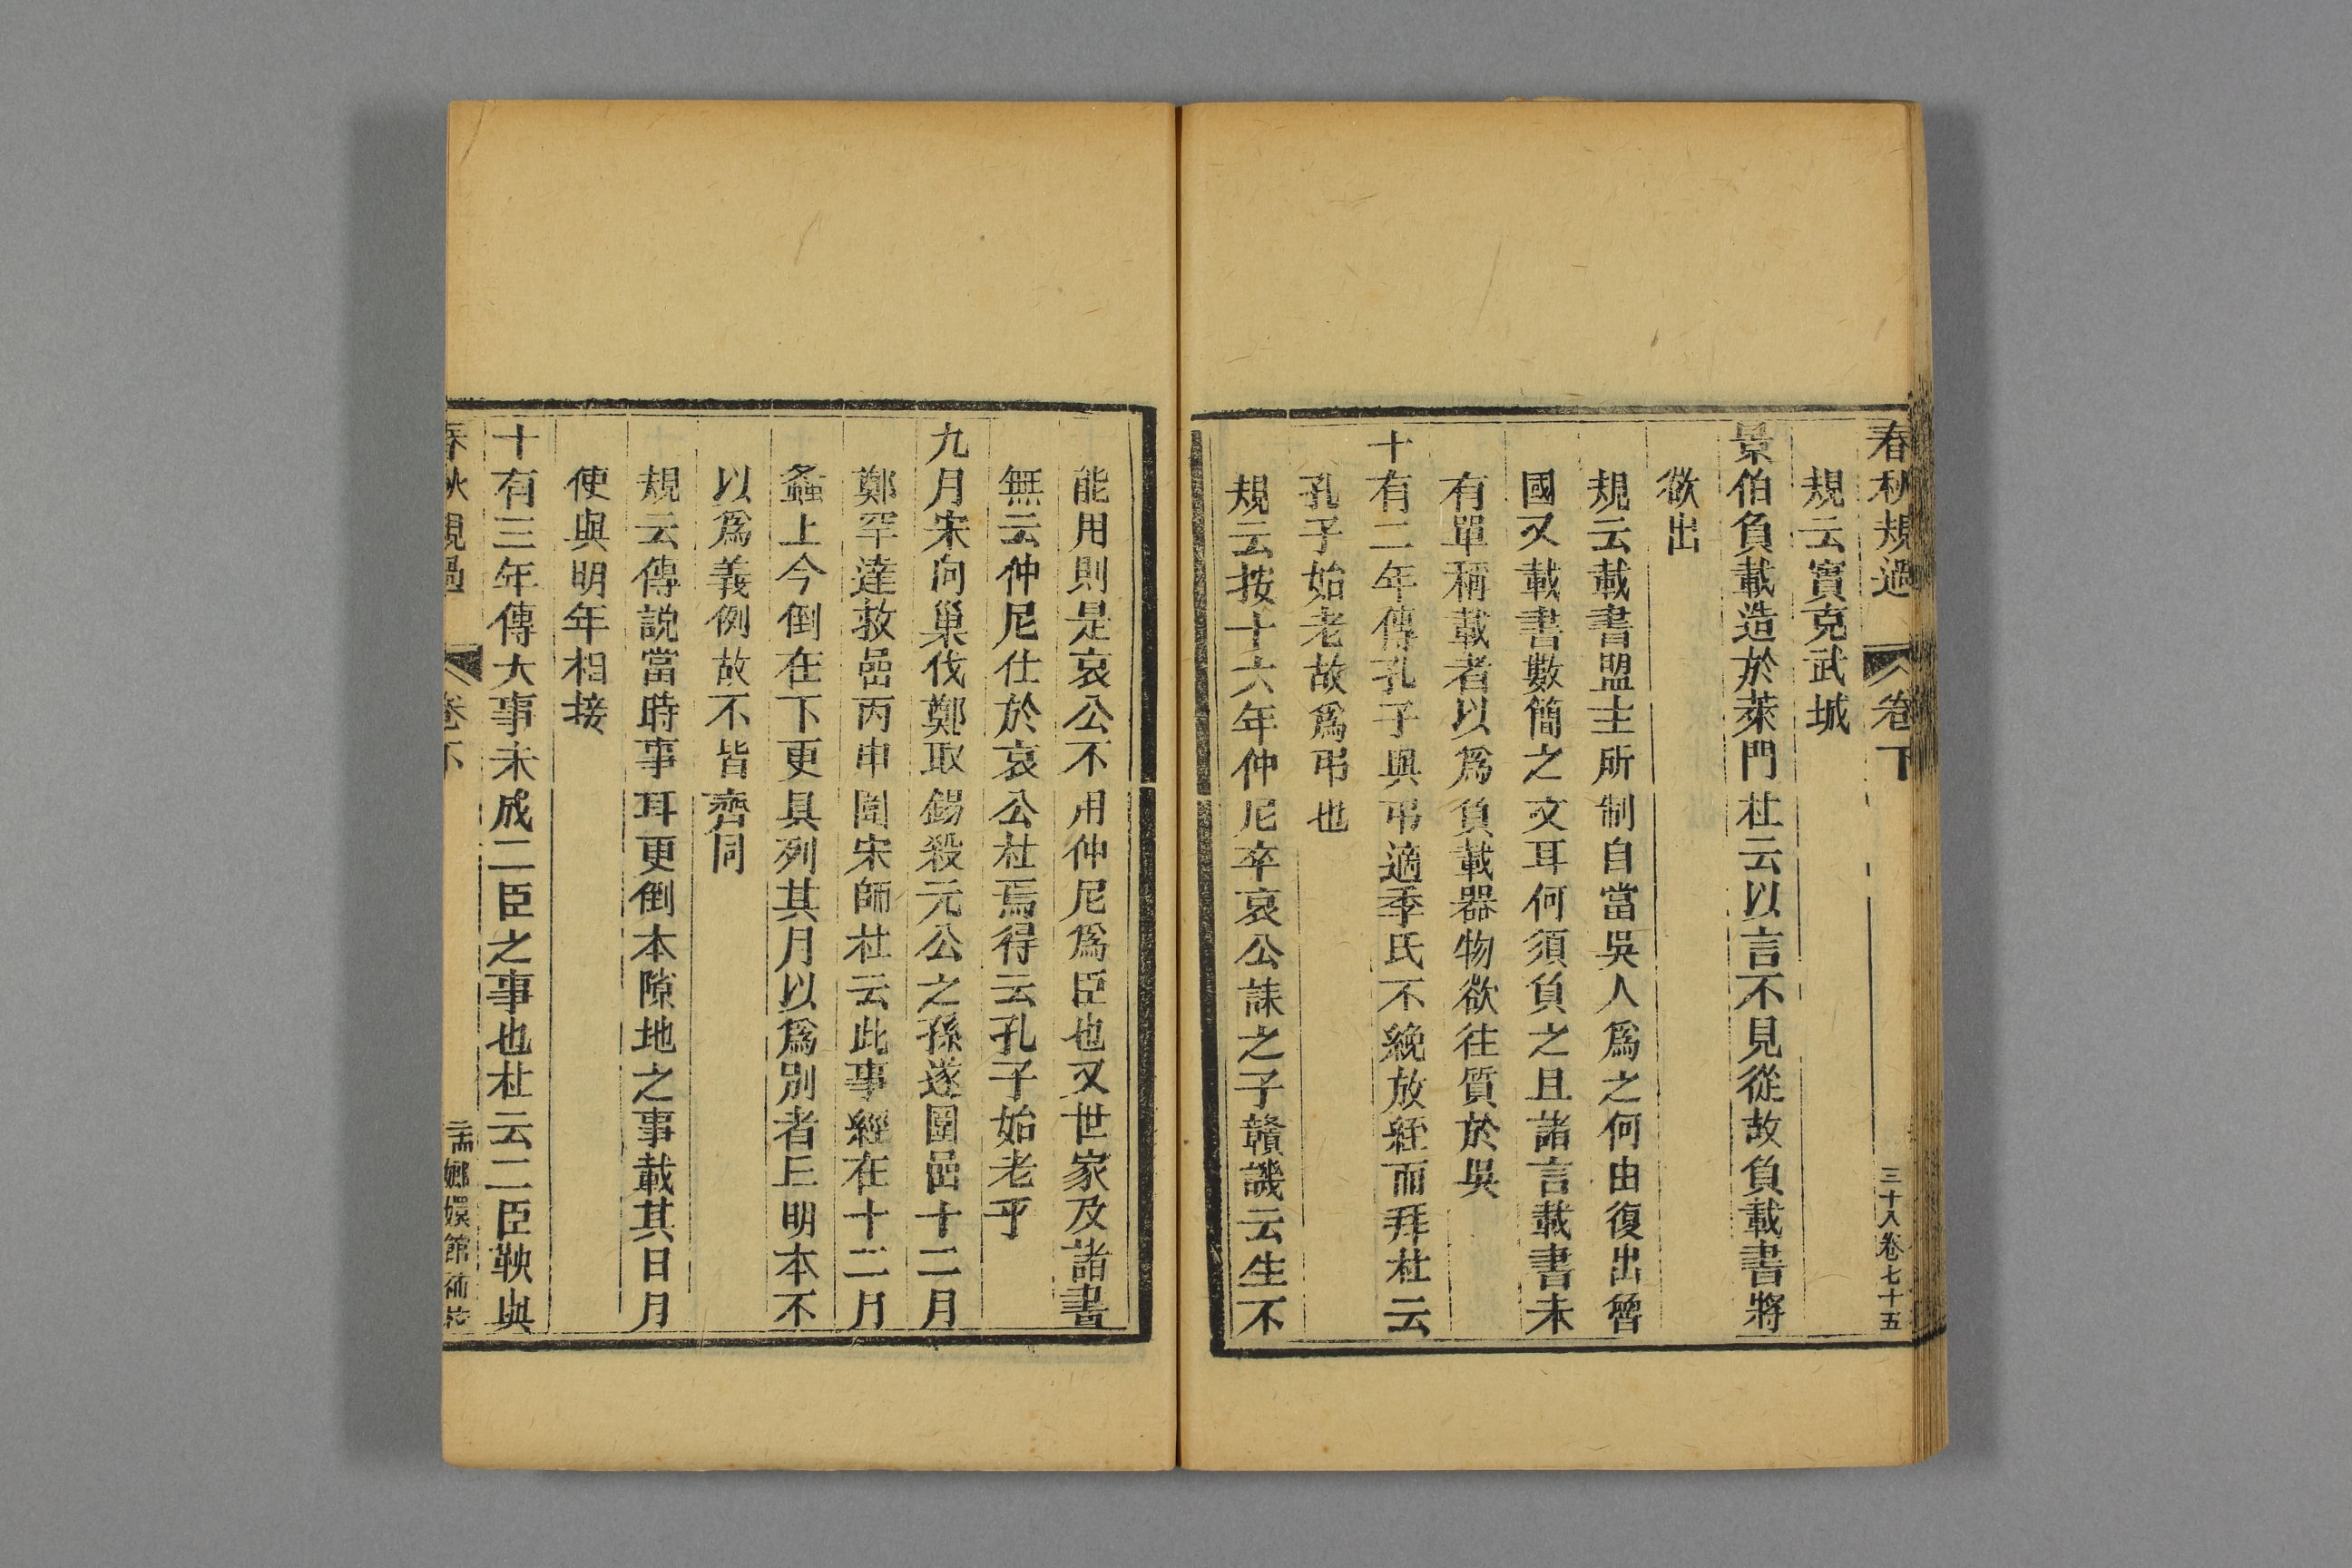 春秋規過 卷下 三十八卷七十五
規云實克武城
景伯負載造於萊門杜云以言不見從故負載書將
欲出
規云載書盟主所制自當吳人爲之何由復出魯
國又載書數簡之文耳何須負之且諸言載書未
有單稱載者以爲負載器物欲往質於吳
十有二年傳孔子與弔適季氏不絻放絰而拜杜云
孔子始老故爲弔也
規云按十六年仲尼卒哀公誄之子贛譏云生不
能用則是哀公不用仲尼爲臣也又世家及諸書
無云仲尼仕於哀公杜焉得云孔子始老乎
九月宋向巢伐鄭取錫殺元公之孫遂圍嵒十二月
鄭罕達救嵒丙申圍宋師杜云此事經在十二月
螽上今倒在下更具列其月以爲別者丘明本不
以爲義例故不皆齊同
規云傳説當時事耳更倒本隙地之事載其日月
使與明年相接
十有三年傳大事未成二臣之事也杜云二臣鞅與
春秋規過 卷下 嫏嬛館補校